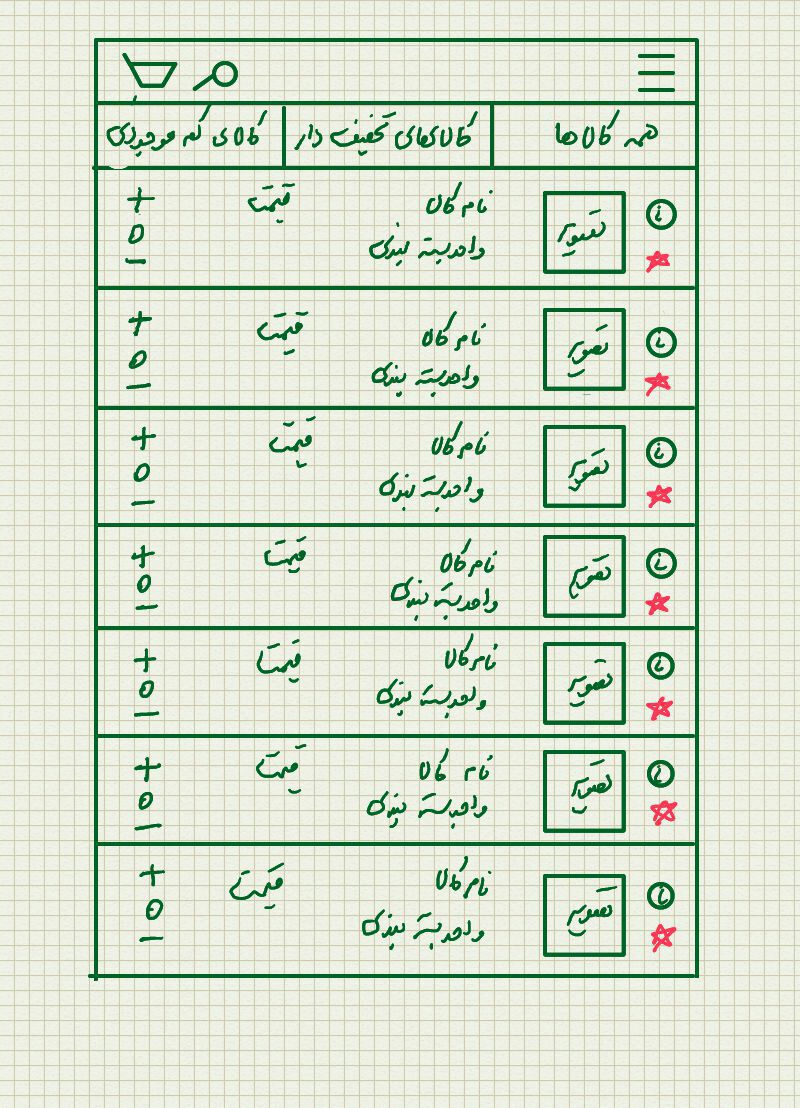 همه کالاها
کالاهای تخفیف دار
کالای کم موجودی
i
تصویر
نام کالا
واحد بسته بندی
قیمت
+
0
-
i
تصویر
نام کالا
واحد بسته بندی
قیمت
+
0
-
i
تصویر
نام کالا
واحد بسته بندی
قیمت
+
0
-
i
تصویر
نام کالا
واحد بسته بندی
قیمت
+
0
-
i
تصویر
نام کالا
واحد بسته بندی
قیمت
+
0
-
i
تصویر
نام کالا
واحد بسته بندی
قیمت
+
0
-
i
تصویر
نام کالا
واحد بسته بندی
قیمت
+
0
-